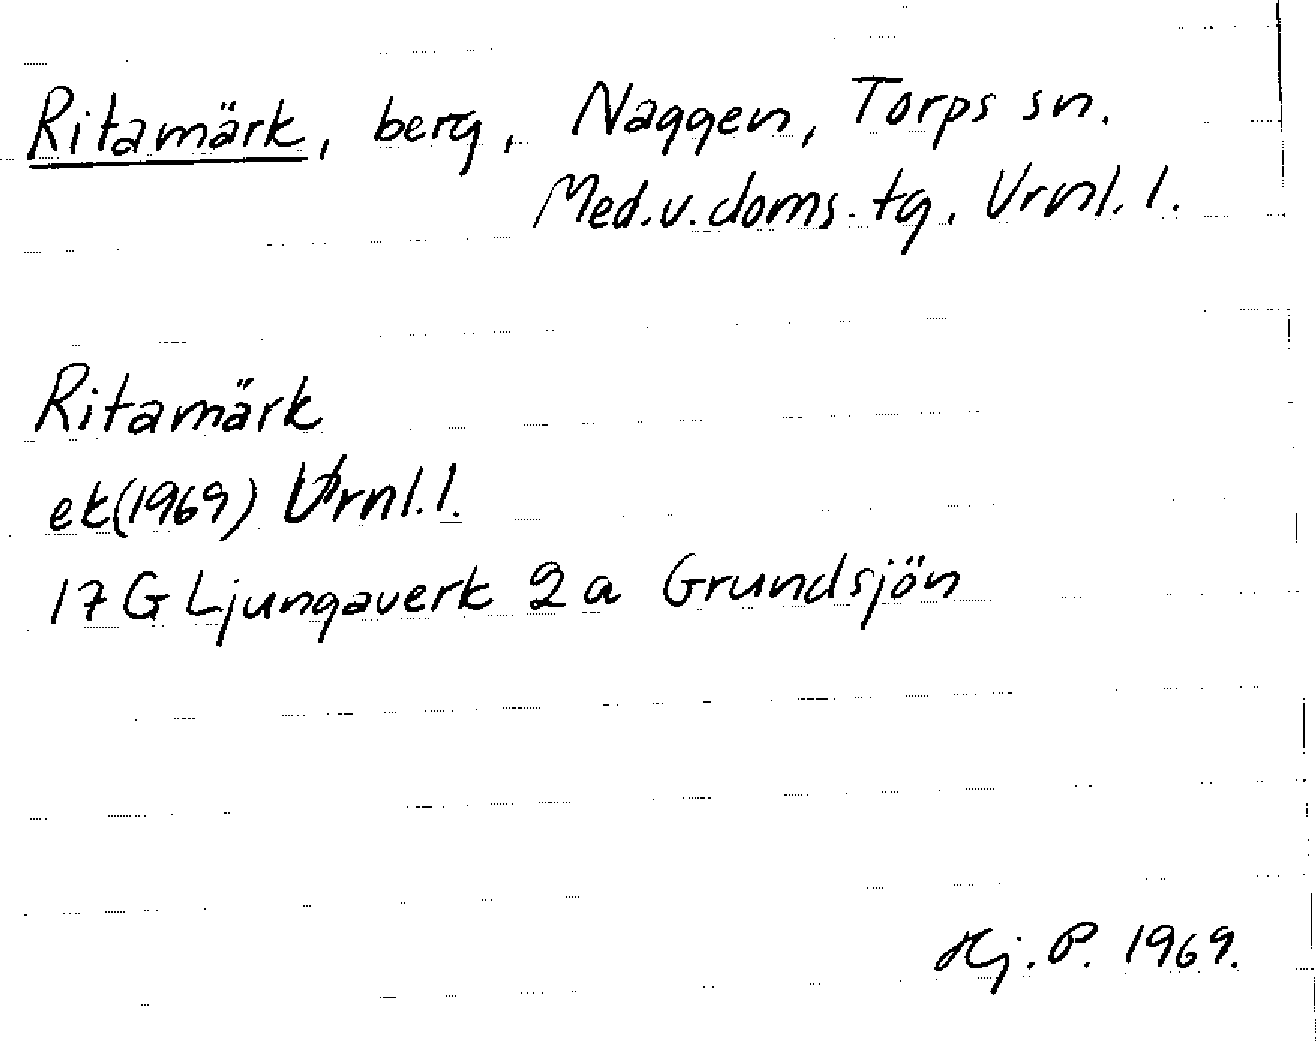 Ritamärk, berg, Naggen, Torps sn.
Med.v.doms.tg. Vrnl.l.
Ritamärk
ek(1969) Vrnl.l.
17 G Ljungaverk 2 a Grundsjön
Hj. P. 1969.